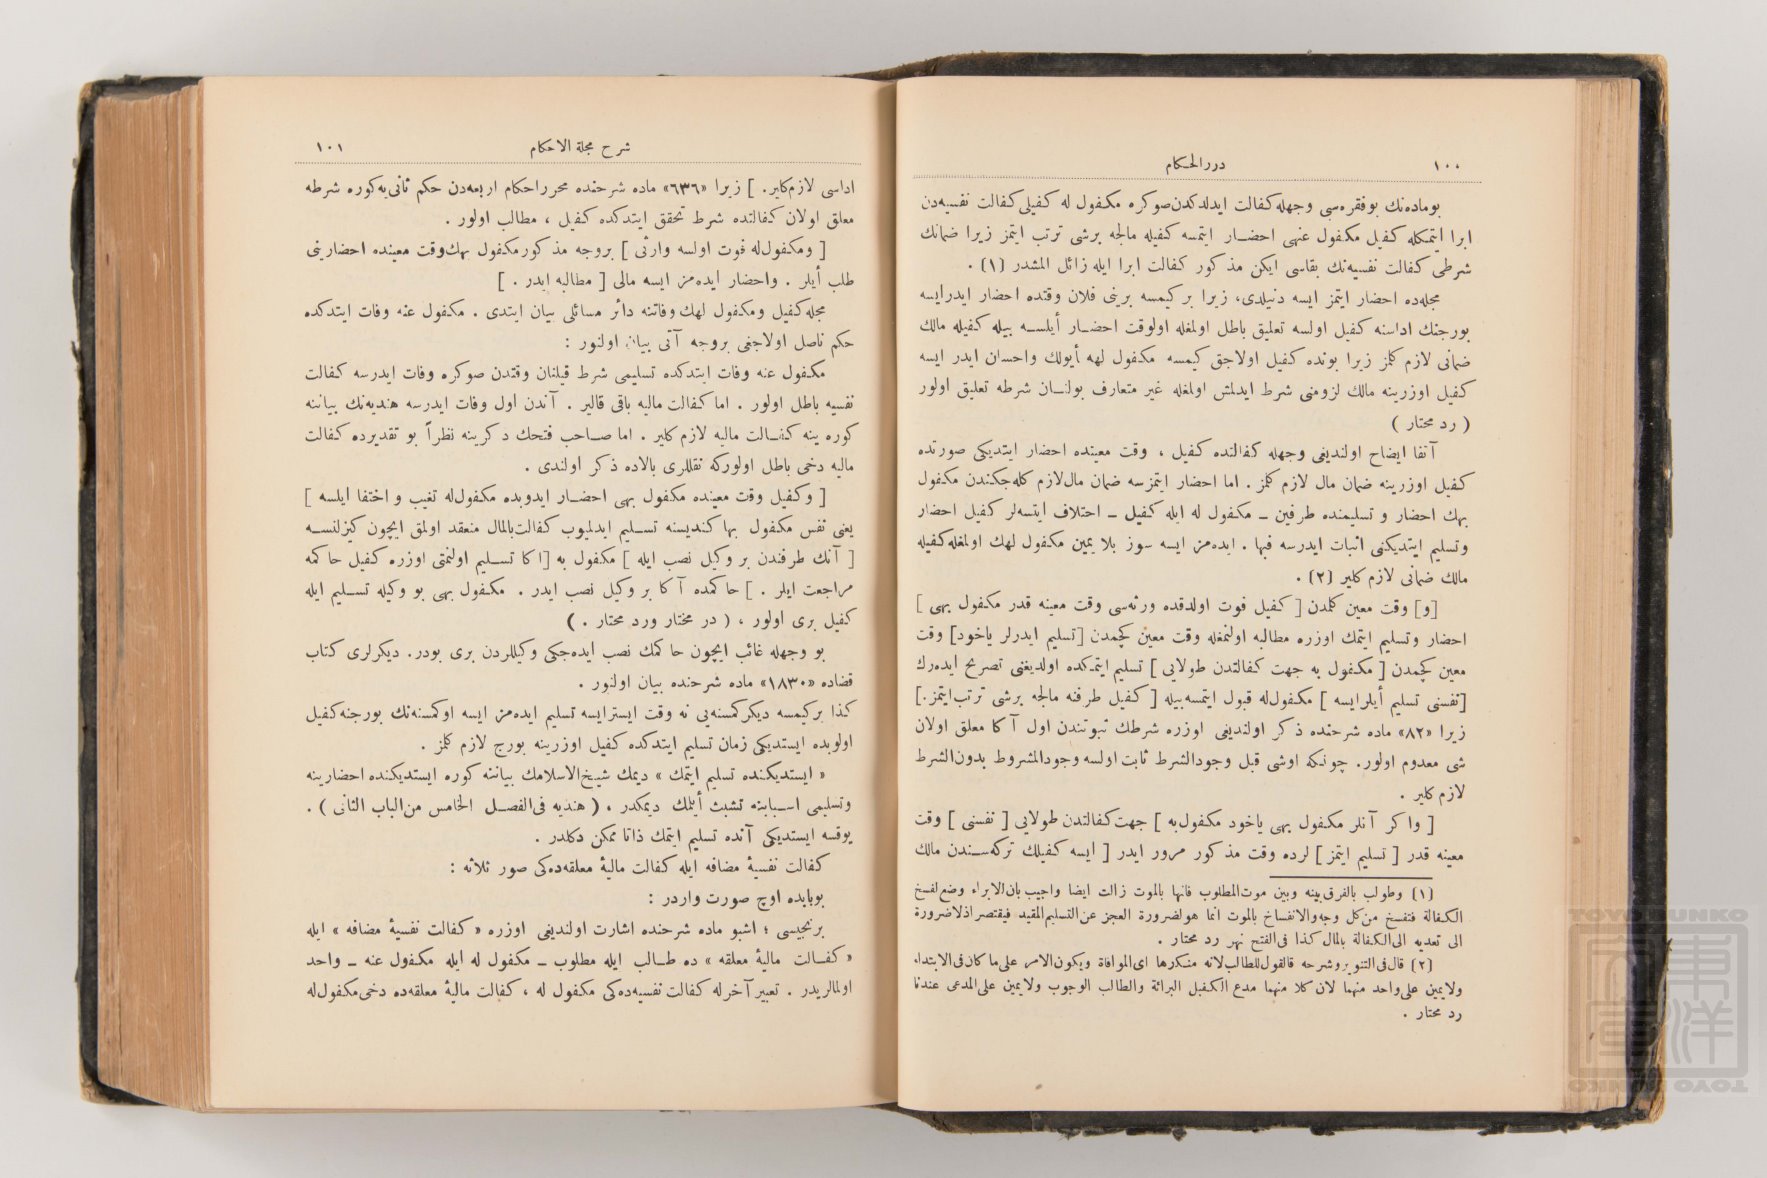 ١٠٠
دررالحكام
بوماده‌نك بوفقره‌سی وجهله كفالت ایدلدكدن‌صوكره مكفول له كفیلی كفالت نفسیه‌دن
ابرا ایتمكله كفیل مكفول عنهی احضار ایتمسه كفیله مالجه برشی ترتب ایتمز زیرا ضمانك
شرطی كفالت نفسیه‌نك بقاسی ایكن مذكور كفالت ابرا ایله زائل المشدر (١) .
مجله‌ده احضار ایتمز ایسه دنیلدی، زیرا بر كیمسه برینی فلان وقتده احضار ایدرایسه
بورجنك اداسنه كفیل اولسه تعلیق باطل اولمغله اولوقت احضار أیلسه بیله كفیله مالك
ضمانی لازم كلز زیرا بونده كفیل اولاجق كیمسه مكفول لهه أیولك واحسان ایدر ایسه
كفیل اوزرینه مالك لزومنی شرط ایدلمش اولمغله غیر متعارف بولنان شرطه تعلیق اولور
( رد محتار )
آنفا ایضاح اولندیغی وجهله كفالتده كفیل ، وقت معینده احضار ایتدیكی صورتده
كفیل اوزرینه ضمان مال لازم كلز . اما احضار ایتمزسه ضمان مال‌لازم كله‌جكندن مكفول
بهك احضار و تسلیمنده طرفین ــ مكفول له ایله كفیل ــ اختلاف ایتسه‌لر كفیل احضار
وتسلیم ایتدیكنی اثبات ایدرسه فبها . ایده‌مز ایسه سوز بلا یمین مكفول لهك اولمغله‌كفیله
مالك ضمانی لازم كلیر (٢) .
[و] وقت معین كلمدن [ كفیل فوت اولدقده ورثه‌سی وقت معینه قدر مكفول بهی ]
احضار وتسلیم ایتمك اوزره مطالبه اولنمغله وقت معین كچمدن [تسلیم ایدرلر یاخود] وقت
معین كچمدن [ مكفول به جهت كفالتدن طولایی ] تسلیم ایتمكده اولدیغنی تصریح ایده‌رك
[نفسنی تسلیم أیلرایسه ] مكفول‌له قبول ایتمسه‌بیله [ كفیل طرفنه مالجه برشی ترتب‌ایتمز.]
زیرا «٨٢» ماده شرحنده ذكر اولندیغی اوزره شرطك ثبوتندن اول آكا معلق اولان
شی معدوم اولور. چونكه اوشی قبل وجودالشرط ثابت اولسه وجودالمشروط بدون‌الشرط
لازم كلیر .
[ واكر آنلر مكفول بهی یاخود مكفول‌به ] جهت‌كفالتدن طولایی [ نفسنی ] وقت
معینه قدر [ تسلیم ایتمز ] لرده وقت مذكور مرور ایدر [ ایسه كفیلك تركه‌سندن مالك
(١) وطولب بالفرق‌بینه وبین موت‌المطلوب فانها بالموت زالت ایضا واجیب بان‌الابراء وضع‌لفسخ
الكفالة فتفسخ من‌كل وجه‌والانفساخ بالموت انما هولضرورة العجز عن‌التسلیم‌المفید فیقتصراذلاضرورة
الی تعدیه الی‌الكفالة بالمال كذا فی‌الفتح نهر رد محتار .
(٢) قال‌فی‌التنویروشرحه فالقول‌للطالب‌لانه منكرها ای‌الموافاة ویكون‌الامر علی‌ما كان‌فی‌الابتداء
ولایمین علی‌واحد منهما لان كلا منهما مدع الكفیل البرائة والطالب الوجوب ولایمین علی‌المدعی عندنا
رد محتار .
شرح مجلة الاحكام
١٠١
اداسی لازم‌كلیر. ] زیرا «٦٣٦» ماده شرحنده محرراحكام اربعه‌دن حكم ثانی‌یه‌كوره شرطه
معلق اولان كفالتده شرط تحقق ایتدكده كفیل ، مطالب اولور .
[ ومكفول‌له فوت اولسه وارثی ] بروجه مذكورمكفول بهك‌وقت معینده احضارینی
طلب أیلر . واحضار ایده‌مز ایسه مالی [ مطالبه ایدر . ]
مجله‌كفیل ومكفول لهك‌وفاتنه دائر مسائلی بیان ایتدی . مكفول عنه وفات ایتدكده
حكم ناصل اولاجغی بروجه آتی بیان اولنور :
مكفول عنه وفات ایتدكده تسلیمی شرط قیلنان وقتدن صوكره وفات ایدرسه كفالت
نفسیه باطل اولور . اما كفالت مالیه باقی قالیر . آندن اول وفات ایدرسه هندیه‌نك بیاننه
كوره ینه كفالت مالیه لازم كلیر . اما صاحب فتحك ذكرینه نظراً بو تقدیرده كفالت
مالیه دخی باطل اولوركه نقللری بالاده ذكر اولندی .
[ وكفیل وقت معینده مكفول بهی احضار ایدوبده مكفول‌له تغیب و اختفا ایلسه ]
یعنی نفس مكفول بها كندیسنه تسلیم ایدلمیوب كفالت‌بالمال منعقد اولمق ایچون كیزلنسه
[ آنك طرفندن بر وكیل نصب ایله ] مكفول به [اكا تسلیم اولنمق اوزره كفیل حاكمه
مراجعت ایلر . ] حاكمده آكا بر وكیل نصب ایدر . مكفول بهی بو وكیله تسلیم ایله
كفیل بری اولور ، ( در مختار ورد محتار . )
بو وجهله غائب ایچون حاكمك نصب ایده‌جكی وكیللردن بری بودر. دیكرلری كتاب
قضاده «١٨٣٠» ماده شرحنده بیان اولنور .
كذا بركیمسه دیكركمسنه‌یی نه وقت ایسترایسه تسلیم ایده‌مز ایسه اوكمسنه‌نك بورجنه‌كفیل
اولوبده ایستدیكی زمان تسلیم ایتدكده كفیل اوزرینه بورج لازم كلز .
« ایستدیكنده تسلیم ایتمك » دیمك شیخ‌الاسلامك بیاننه كوره ایستدیكنده احضارینه
وتسلیمی اسبابنه تشبث أیلمك دیمكدر ، ( هندیه فی‌الفصل الخامس من‌الباب الثانی ) .
یوقسه ایستدیكی آنده تسلیم ایتمك ذاتا ممكن دكلدر .
كفالت نفسیهٔ مضافه ایله كفالت مالیهٔ معلقه‌ده‌كی صور ثلاثه :
بوبابده اوچ صورت واردر :
برنجیسی ؛ اشبو ماده شرحنده اشارت اولندیغی اوزره « كفالت نفسیهٔ مضافه » ایله
« كفالت مالیهٔ معلقه » ده طالب ایله مطلوب ــ مكفول له ایله مكفول عنه ــ واحد
اولمالریدر . تعبیر آخرله كفالت نفسیه‌ده‌كی مكفول له ، كفالت مالیهٔ معلقه‌ده دخی‌مكفول‌له
TOYO BUNKO